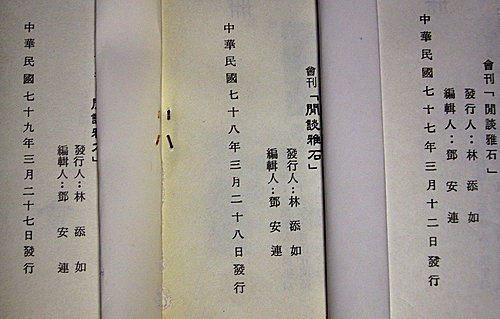 會刊「閒談雅石」
發行人：林添如
編輯人：鄧安連
中華民國七十七年三月十二日發行
會刊「閒談雅石」
發行人：林添如
編輯人：鄧安連
中華民國七十八年三月二十八日發行
閒談雅石」
發行人：林添如
編輯人：鄧安連
中華民國七十九年三月二十七日發行